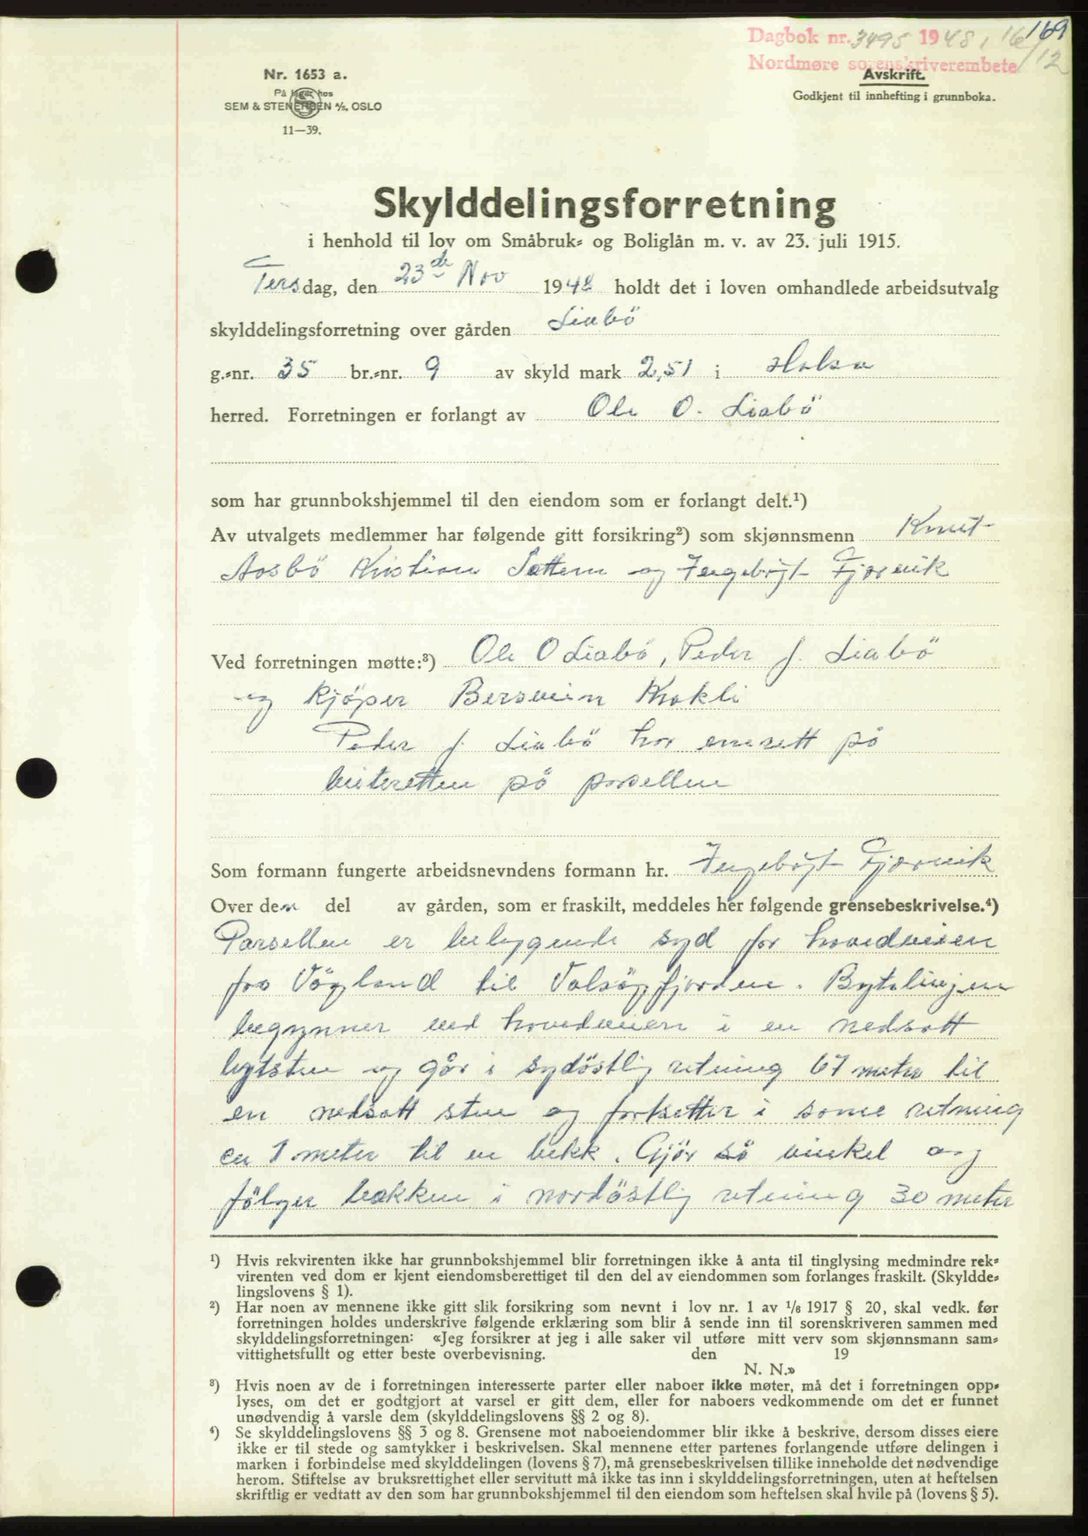 169
Dagbok nr. 3495 1948, 16/12
Nordmøre sorenskriverembete
Nr. 1653 a.
På lager hos
SEM & STENERSEN A/S, OSLO
11—39.
Avskrift.
Godkjent til innhefting i grunnboka.
Skylddelingsforretning
i henhold til lov om Småbruk- og Boliglån m. v. av 23. juli 1915.
Tersdag, den 23de Nov 1948 holdt det i loven omhandlede arbeidsutvalg
skylddelingsforretning over gården Liabö
g.-nr. 35 br.-nr. 9 av skyld mark 2,51 i Halsa
herred. Forretningen er forlangt av Ole O. Liabö
som har grunnbokshjemmel til den eiendom som er forlangt delt.¹)
Av utvalgets medlemmer har følgende gitt forsikring²) som skjønnsmenn Knut
Aasbö Kristian Sættem og Ingebrigt Gjörvik
Ved forretningen møtte:³) Ole O Liabö, Peder J. Liabö
og kjöper Bersvein Krokli
Peder J. Liabö har ensrett på
beiteretten på parsellen
Som formann fungerte arbeidsnevndens formann hr. Ingebrigt Gjörvik
Over den del av gården, som er fraskilt, meddeles her følgende grensebeskrivelse.⁴)
Parsellen er beliggende syd for hovedveien
fra Vågland til Valsöyfjorden. Bytelinjen
begynner ved hovedveien i en nedsatt
bytesten og går i sydöstlig retning 67 meter til
en nedsatt sten og fortsetter i same retning
ca 1 meter til en bekk. Gjör så vinkel og
fölger bekken i nordöstlig retning 30 meter
¹) Hvis rekvirenten ikke har grunnbokshjemmel blir forretningen ikke å anta til tinglysing medmindre rek-
virenten ved dom er kjent eiendomsberettiget til den del av eiendommen som forlanges fraskilt. (Skyldde-
lingslovens § 1).
²) Har noen av mennene ikke gitt slik forsikring som nevnt i lov nr. 1 av 1/6 1917 § 20, skal vedk. før
forretningen holdes underskrive følgende erklæring som blir å sende inn til sorenskriveren sammen med
skylddelingsforretningen: «Jeg forsikrer at jeg i alle saker vil utføre mitt verv som skjønnsmann sam-
vittighetsfullt og etter beste overbevisning. den 19
N. N.»
³) Hvis noen av de i forretningen interesserte parter eller naboer ikke møter, må det i forretningen opp-
lyses, om det er godtgjort at varsel er gitt dem, eller for naboers vedkommende om det er funnet
unødvendig å varsle dem (skylddelingslovens §§ 2 og 8).
⁴) Se skylddelingslovens §§ 3 og 8. Grensene mot naboeiendommer blir ikke å beskrive, dersom disses eiere
ikke er til stede og samtykker i beskrivelsen. Skal mennene etter partenes forlangende utføre delingen i
marken i forbindelse med skylddelingen (lovens § 7), må grensebeskrivelsen tillike inneholde det nødvendige
herom. Stiftelse av bruksrettighet eller servitutt må ikke tas inn i skylddelingsforretningen, uten at heftelsen
skriftlig er vedtatt av den som har grunnbokshjemmel til den eiendom som heftelsen skal hvile på (lovens § 5).